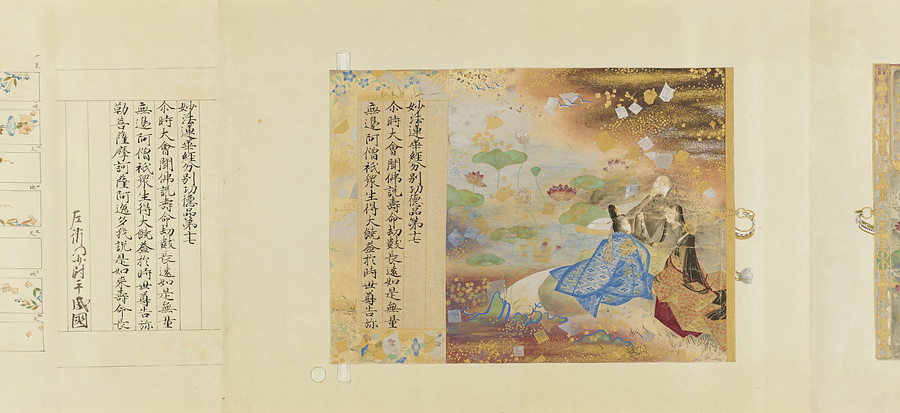 妙法蓮華經分別功德品第十七
尒時大會聞佛說壽命劫數長遠如是無量
無邊阿僧祇衆生得大饒益於時世尊告弥
妙法蓮華經分別功德品第十七
尒時大會聞佛說壽命劫數長遠如是無量
無邊阿僧祇衆生得大饒益於時世尊告弥
勒菩薩摩訶薩阿逸多我說是如来壽命長
左衛門少尉平盛國